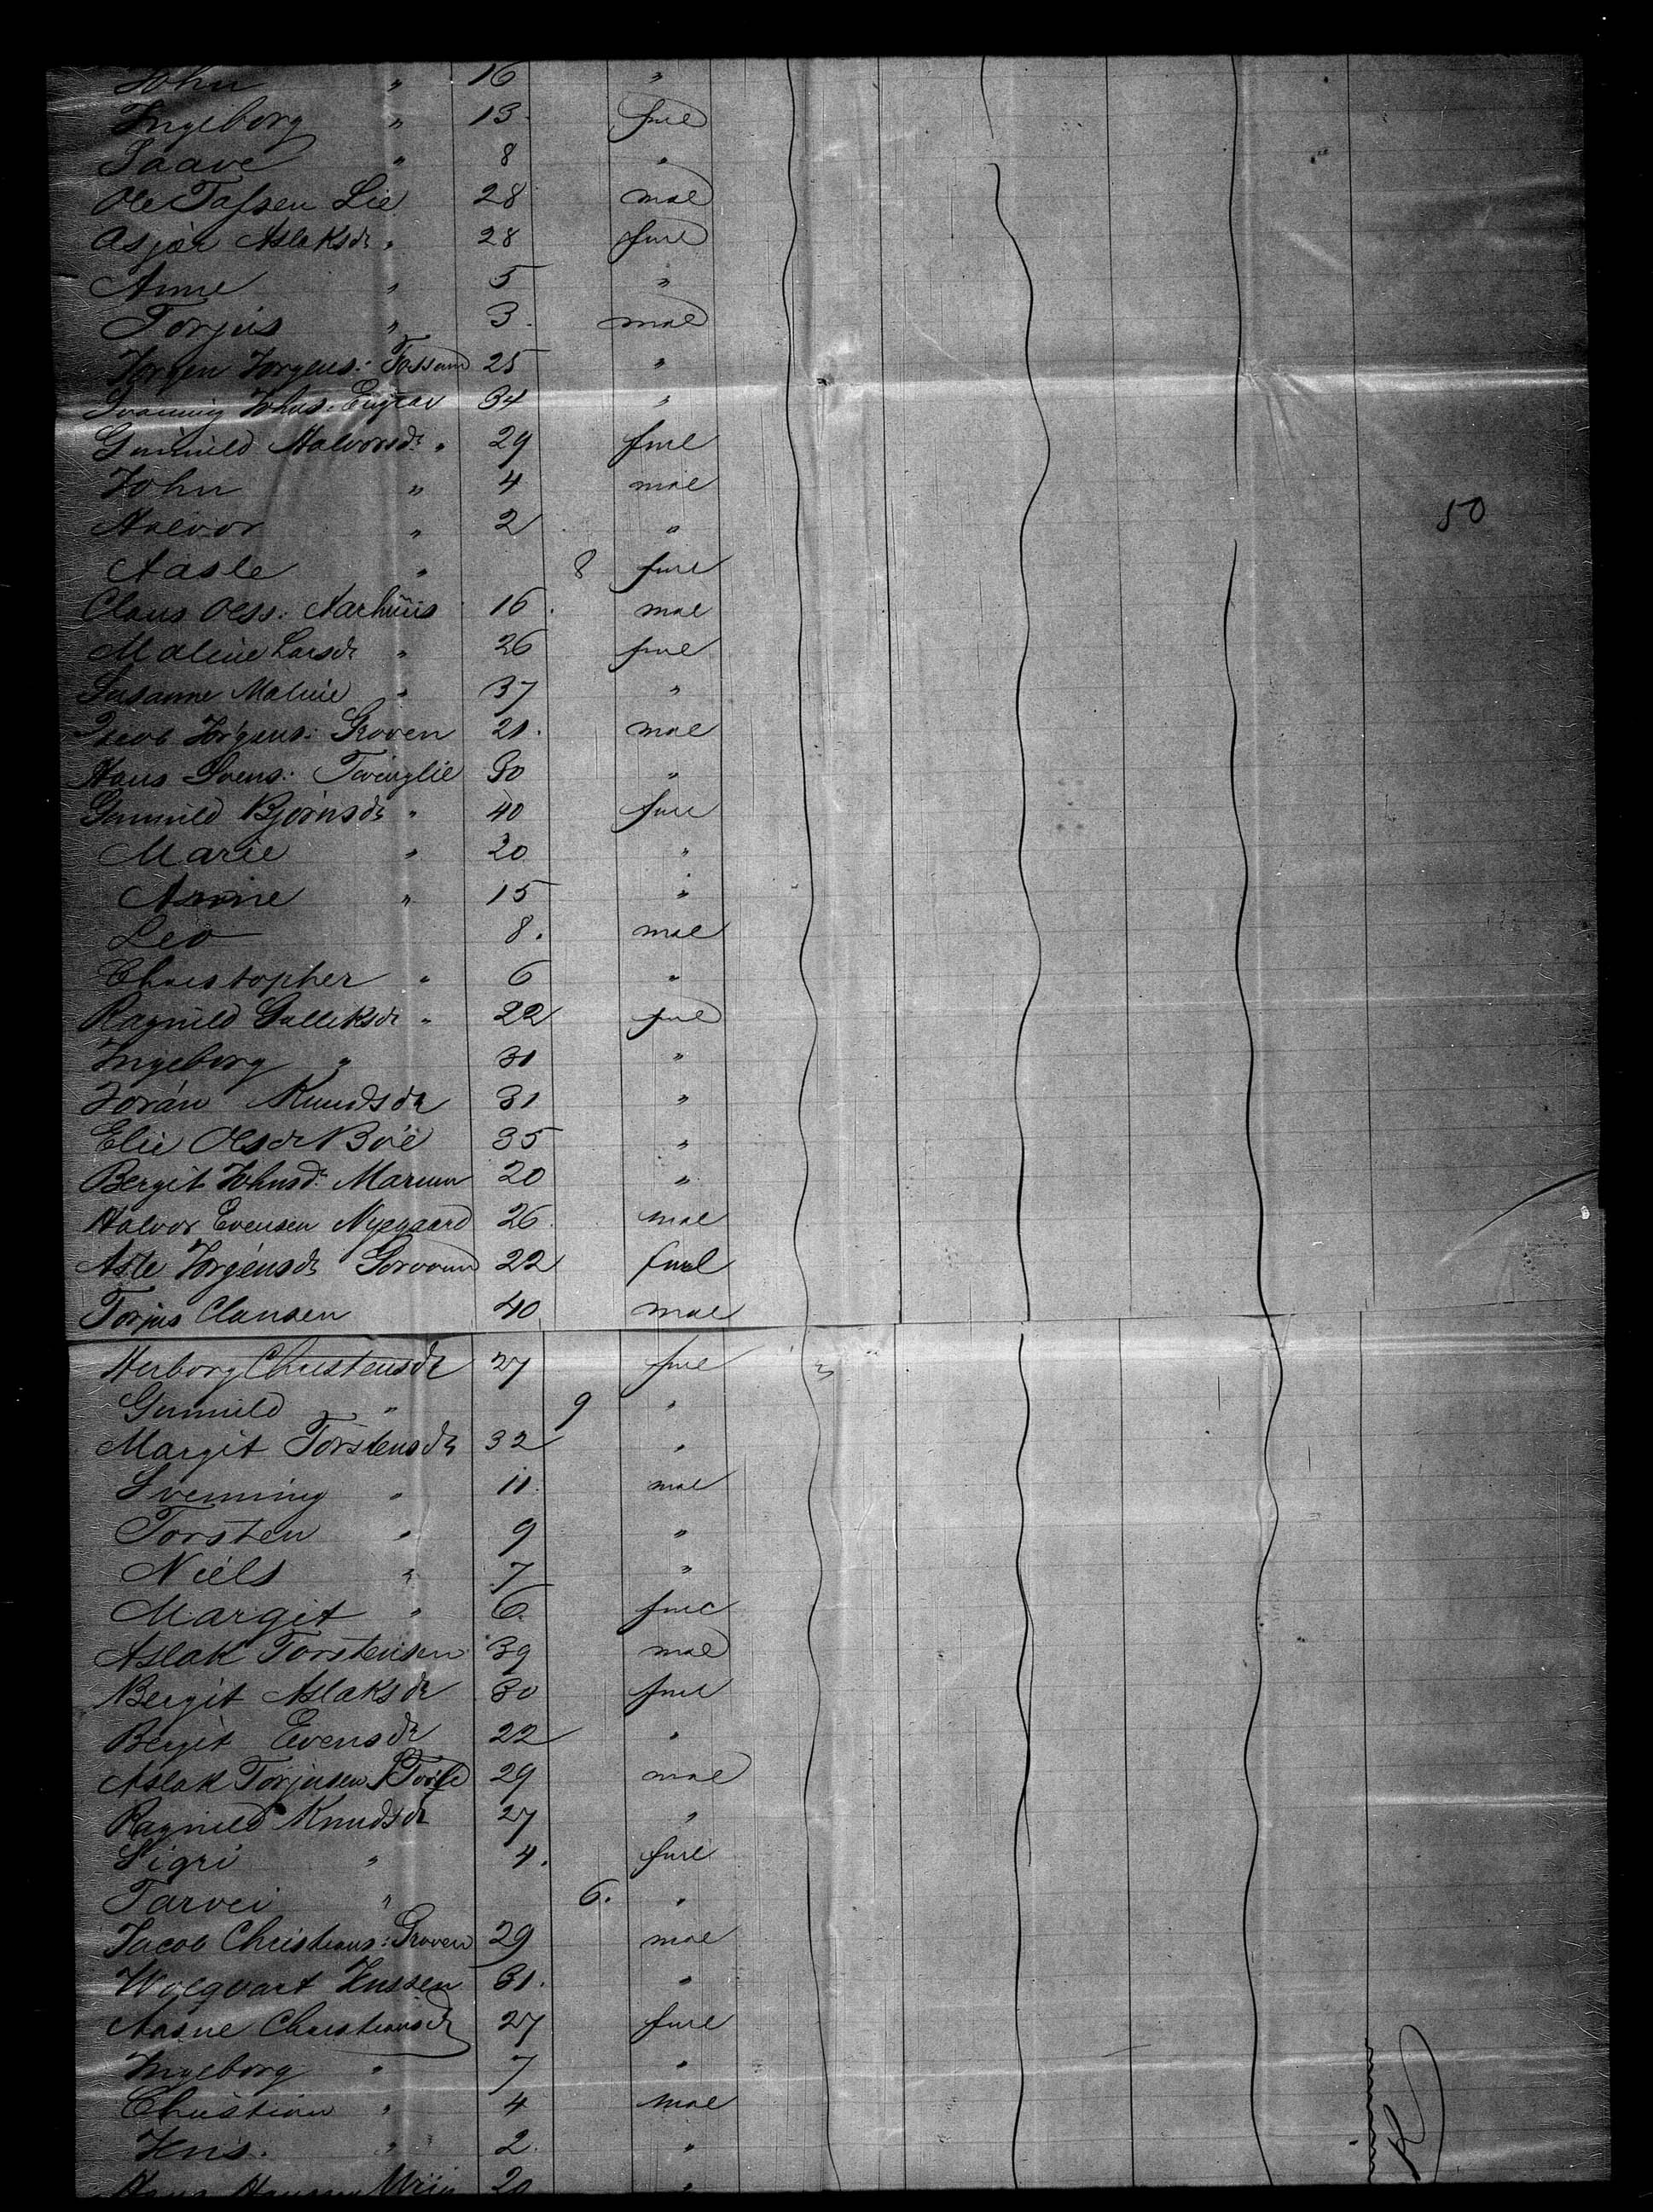 John " 16 "
Ingeborg " 13 fml
Saave " 8 "
Ole Tafsen Lie 28 mal
Asjør Aslaksdr " 28 fml
Anne " 5 "
Torjus " 3 mal
Jørgen Jørgens: Fossum 25 "
Svenning Johns: 34 "
Gunnild Halvorsdr " 29 fml
John " 4 mal
Halvor " 2 "
50
Aasle " 8 fml
Claus Oless: Aarhuus 16 mal
Maline Larsdr " 26 fml
Susanne Maline " 37 "
Jacob Jörgens: Groven 21 mal
Hans Svens: 30 "
Gunnild Bjørnsdr " 40 fml
Marie " 20 "
Anne " 15 "
Leo 8 mal
Christopher " 6 "
Ragnild Gulleksdr " 22 fml
Ingeborg " 31 "
Jorán Knudsdr 31 "
Elie Olsdr Böe 35 "
Bergit Johnsd: Marum 20 "
Halvor Evensen Nygaard 26 mal
Asle Jørgensdr 22 fml
Torjus Clausen 40 mal
Herborg Christensdr 27 fml
Gunnild " 9 "
Margit Torstensdr 32 "
Svenning " 11 mal
Torsten " 9 "
Niels " 7 "
Margit " 6 fml
Aslak Torstensen 39 mal
Bergit Aslaksdr 30 fml
Bergit Evensdr 22 "
Aslak Torjusen 29 mal
Ragnild Knudsdr 27 "
Sigri " 4 fml
Tarvei " 6 "
Jacob Christians: Groven 29 mal
Wolgvart Jenssen 31 "
Aasne Christiansdr 27 fml
Ingeborg " 7 "
Christian " 4 mal
Jens " 2 "
Hans Hansen 20 "